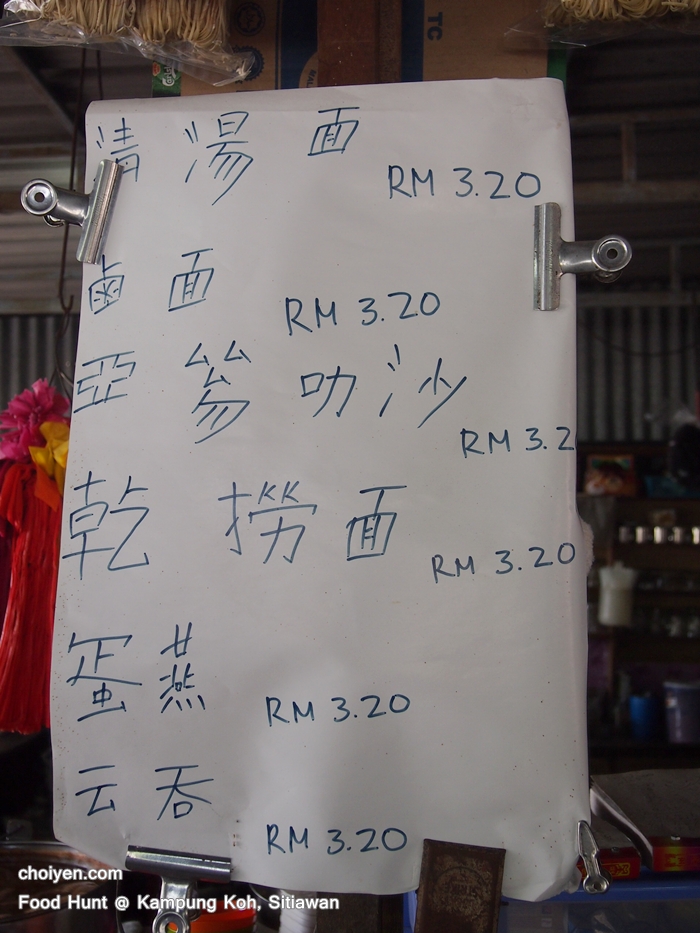 TC
清 湯 面
RM 3.20
鹵 面
RM 3.20
亞 參 叻 沙
RM 3.2
乾 撈 面
RM 3.20
蛋 燕
RM 3.20
云 吞
RM 3.20
choiyen.com
Food Hunt @ Kampung Koh, Sitiawan